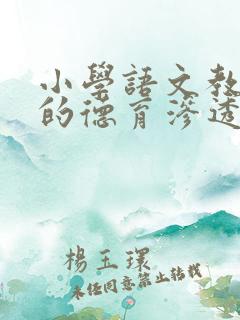 小學語文教
的德育滲透
楊玉環
未经同意禁止转载